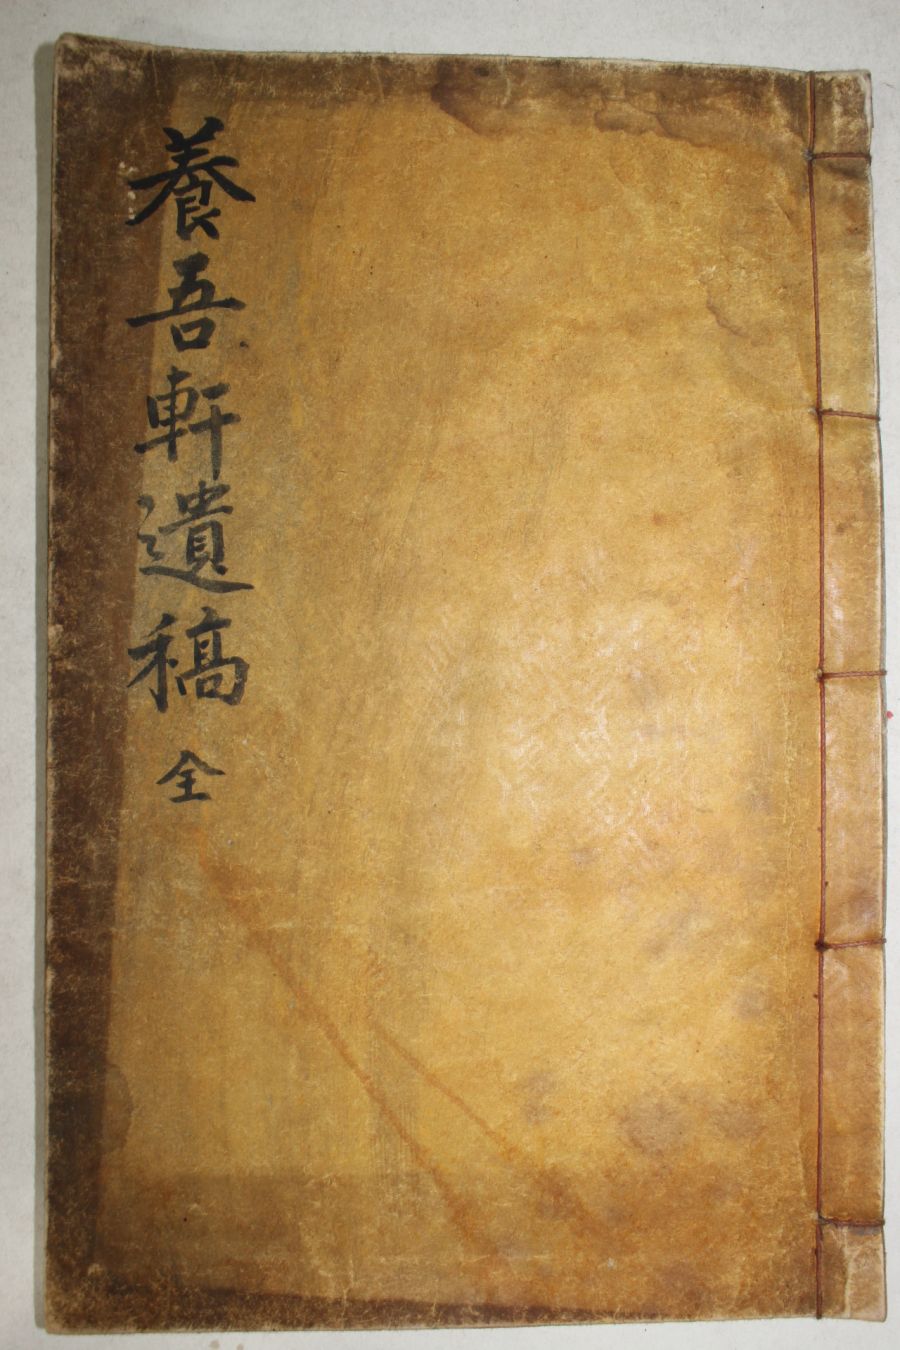 養吾軒遺稿 全